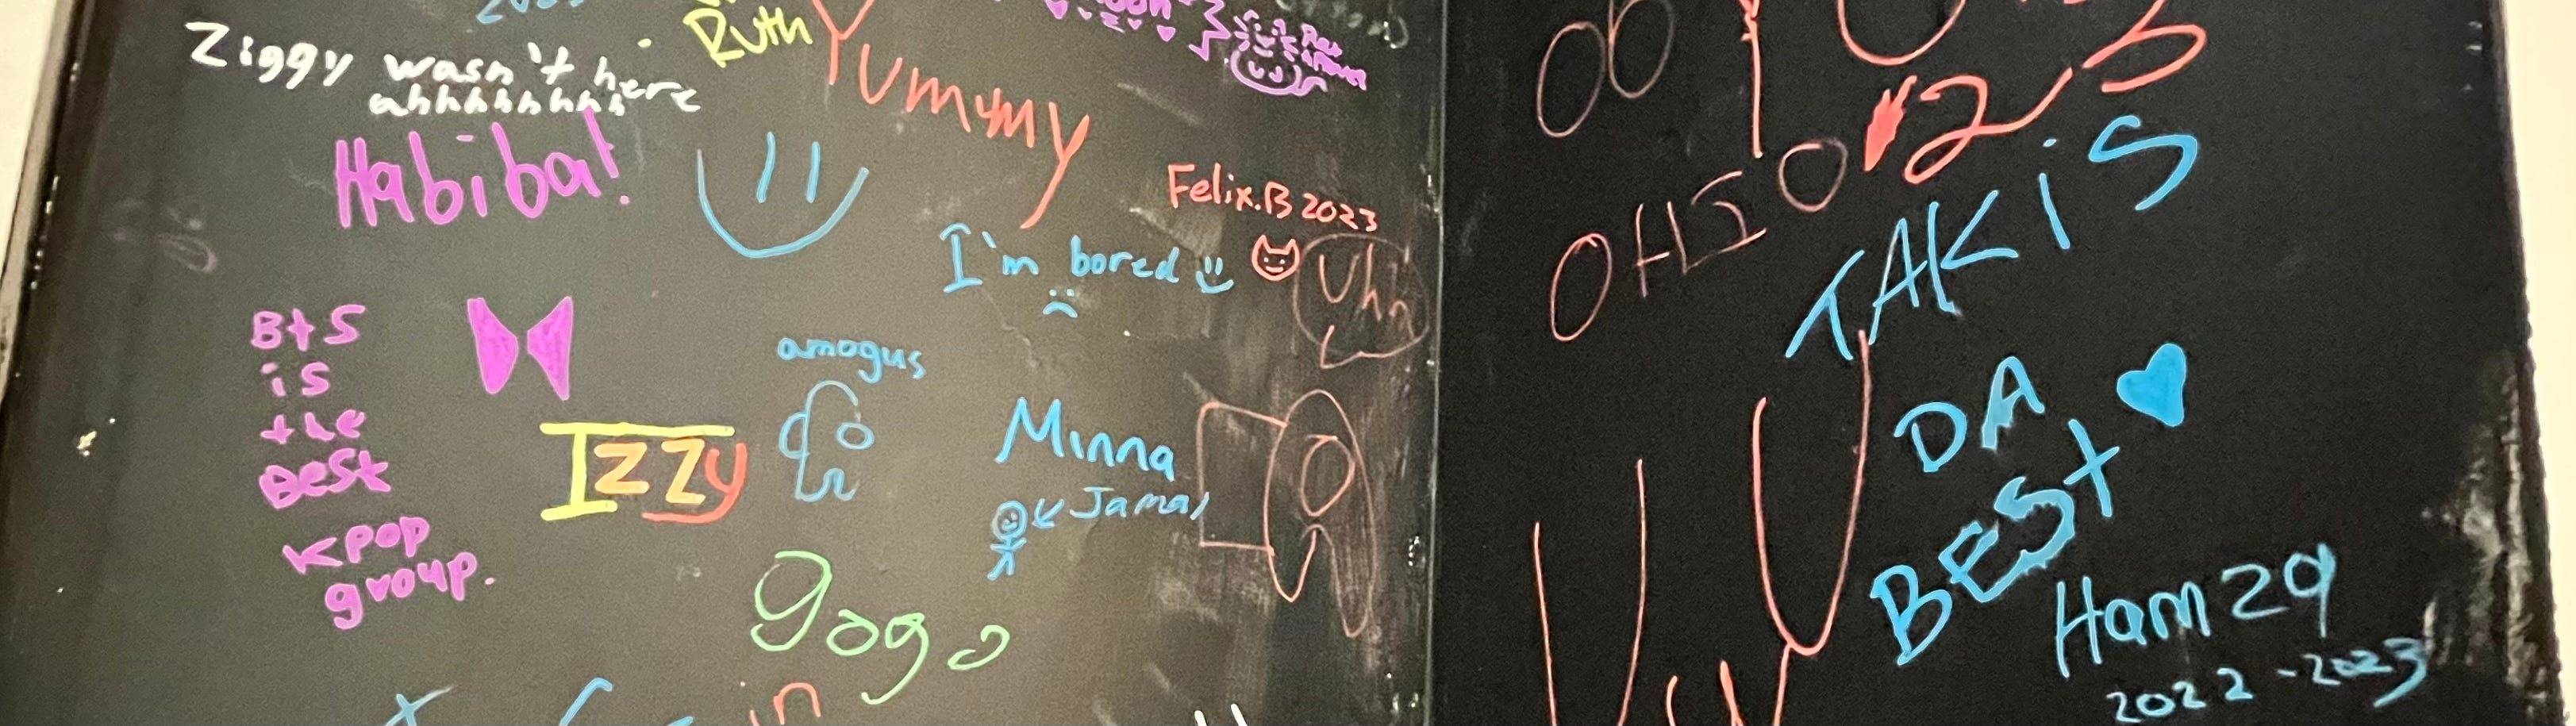 Ruth
Yummy
Ziggy wasn't here
ahhhhhhhh
Habiba!
Felix.B 2023
I'm bored
Uhh
OHIO
TAKiS
DA
BEST
BtS
is
the
BeSt
Kpop
group.
amogus
IZZy
Minna
Jamal
gogo
Hamza
2022-2023